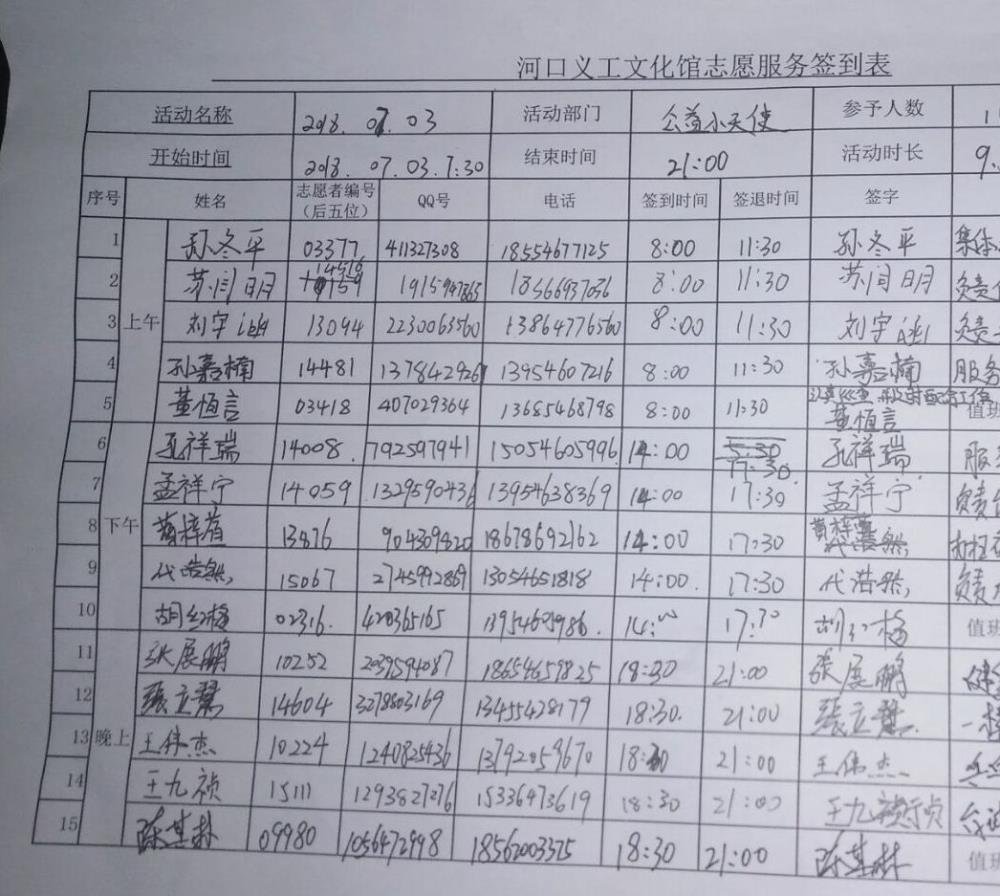 河口义工文化馆志愿服务签到表
活动名称 2018.07.03 活动部门 公益小天使 参予人数 11
开始时间 2018.07.03.7:30 结束时间 21:00 活动时长 9.
序号 姓名 志愿者编号（后五位） QQ号 电话 签到时间 签退时间 签字
1 上午 孙冬平 03377 411327308 18554677125 8:00 11:30 孙冬平
2 苏闫明月 14516 1915947865 18566937036 8:00 11:30 苏闫明月
3 刘宇 13094 2230063560 13864776560 8:00 11:30 刘宇
4 孙嘉楠 14481 1378429261 13954607216 8:00 11:30 孙嘉楠 服务
5 董恒言 03418 407029364 13685468798 8:00 11:30 董恒言 值班
6 下午 孔祥瑞 14008. 792597941 15054605996 14:00 17:30. 孔祥瑞 服
7 孟祥宁 14059 1329590436 13954638369 14:00 17:30 孟祥宁
8 13876 904309820 18678692162 14:00 17:30
9 代浩然 15067 2745992869 13054651818 14:00. 17:30 代浩然
10 胡红梅 02316. 420365165 13954605986. 14:00 17:30 胡红梅 值班
11 晚上 张展鹏 10252 2039594087 18654659825 18:30 21:00 张展鹏
12 張立 14604 3278803169 13455428179 18:30. 21:00 張立
13 王伟杰 10224 1240825436 13792059670 18:30 21:00 王伟杰
14 王九祯 15111 1293827276 15336473619 18:30 21:00 王九祯
15 陈基林 09980 1056472998 18562003375 18:30 21:00 陈基林 值班